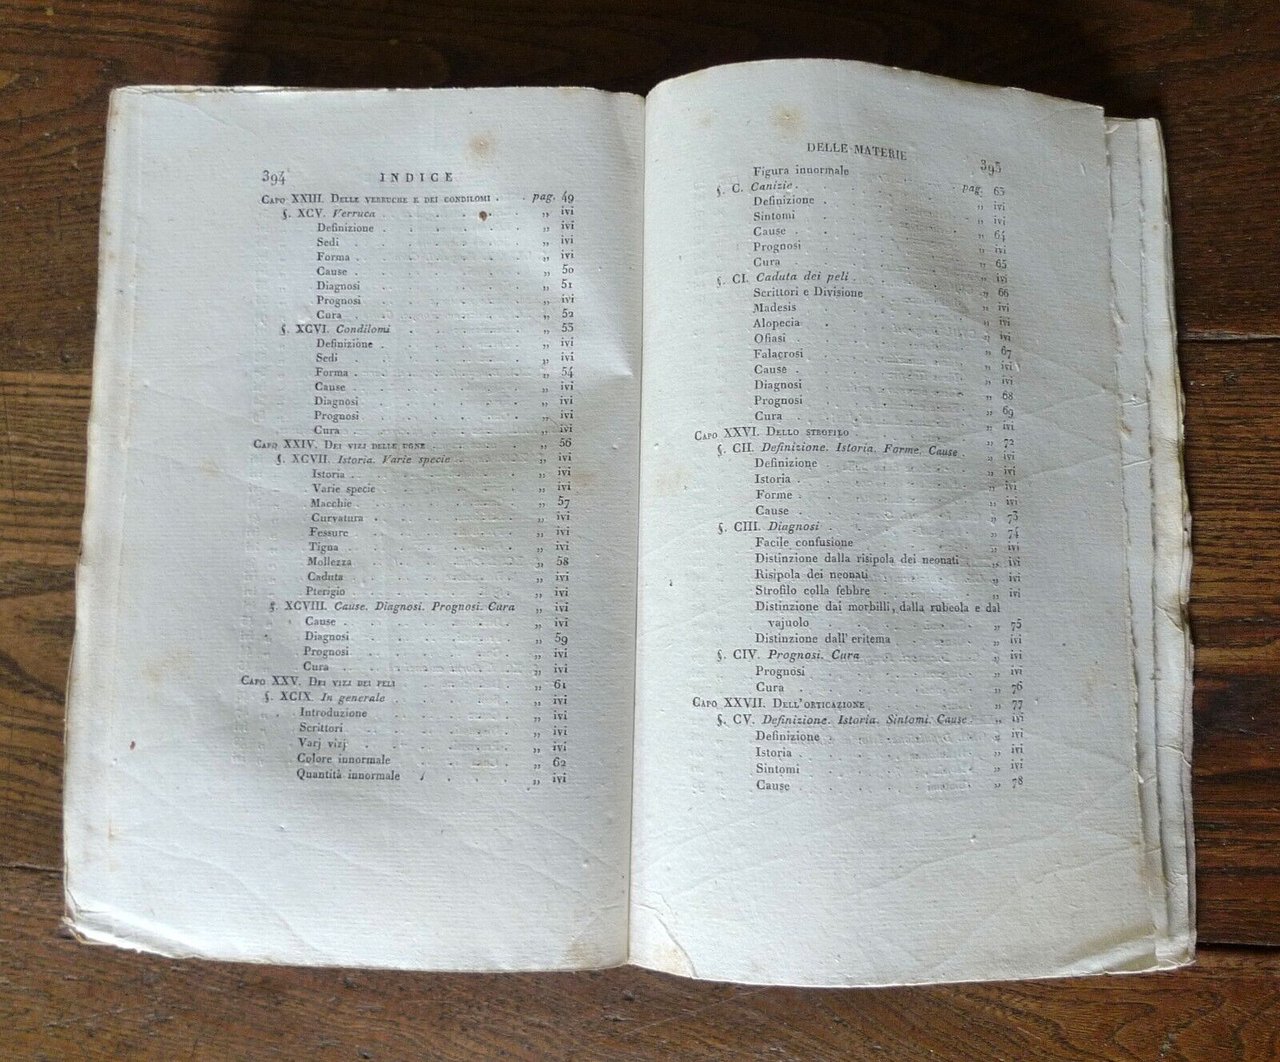 394 INDICE
Capo XXIII. Delle verruche e dei condilomi . . pag. 49
§. XCV. Verruca . . . . . . „ ivi
Definizione . . . . . . „ ivi
Sedi . . . . . . „ ivi
Forma . . . . . . „ ivi
Cause . . . . . . „ 50
Diagnosi . . . . . . „ 51
Prognosi . . . . . . „ ivi
Cura . . . . . . „ 52
§. XCVI. Condilomi . . . . . . „ 53
Definizione . . . . . . „ ivi
Sedi . . . . . . „ ivi
Forma . . . . . . „ 54
Cause . . . . . . „ ivi
Diagnosi . . . . . . „ ivi
Prognosi . . . . . . „ ivi
Cura . . . . . . „ ivi
Capo XXIV. Dei vizj delle ugne . . . . . . „ 56
§. XCVII. Istoria. Varie specie . . . . . . „ ivi
Istoria . . . . . . „ ivi
Varie specie . . . . . . „ ivi
Macchie . . . . . . „ 57
Curvatura . . . . . . „ ivi
Fessure . . . . . . „ ivi
Tigna . . . . . . „ ivi
Mollezza . . . . . . „ 58
Caduta . . . . . . „ ivi
Pterigio . . . . . . „ ivi
§. XCVIII. Cause. Diagnosi. Prognosi. Cura „ ivi
Cause . . . . . . „ ivi
Diagnosi . . . . . . „ 59
Prognosi . . . . . . „ ivi
Cura . . . . . . „ ivi
Capo XXV. Dei vizj dei peli . . . . . . „ 61
§. XCIX. In generale . . . . . . „ ivi
Introduzione . . . . . . „ ivi
Scrittori . . . . . . „ ivi
Varj vizj . . . . . . „ ivi
Colore innormale . . . . . . „ 62
Quantità innormale . . . . . . „ ivi
DELLE MATERIE 395
Figura innormale . . . . . . pag. 63
§. C. Canizie . . . . . . „ ivi
Definizione . . . . . . „ ivi
Sintomi . . . . . . „ ivi
Cause . . . . . . „ 64
Prognosi . . . . . . „ ivi
Cura . . . . . . „ 65
§. CI. Caduta dei peli . . . . . . „ ivi
Scrittori e Divisione . . . . . . „ 66
Madesis . . . . . . „ ivi
Alopecia . . . . . . „ ivi
Ofiasi . . . . . . „ ivi
Falacrosi . . . . . . „ 67
Cause . . . . . . „ ivi
Diagnosi . . . . . . „ ivi
Prognosi . . . . . . „ 68
Cura . . . . . . „ 69
Capo XXVI. Dello strofilo . . . . . . „ ivi
§. CII. Definizione. Istoria. Forme. Cause . „ 72
Definizione . . . . . . „ ivi
Istoria . . . . . . „ ivi
Forme . . . . . . „ ivi
Cause . . . . . . „ ivi
§. CIII. Diagnosi . . . . . . „ 73
Facile confusione . . . . . . „ 74
Distinzione dalla risipola dei neonati . „ ivi
Risipola dei neonati . . . . . . „ ivi
Strofilo colla febbre . . . . . . „ ivi
Distinzione dai morbilli, dalla rubeola e dal
vajuolo . . . . . . „ 75
Distinzione dall' eritema . . . . . . „ ivi
§. CIV. Prognosi. Cura . . . . . . „ ivi
Prognosi . . . . . . „ ivi
Cura . . . . . . „ 76
Capo XXVII. Dell'orticazione . . . . . . „ 77
§. CV. Definizione. Istoria. Sintomi. Cause . „ ivi
Definizione . . . . . . „ ivi
Istoria . . . . . . „ ivi
Sintomi . . . . . . „ ivi
Cause . . . . . . „ 78